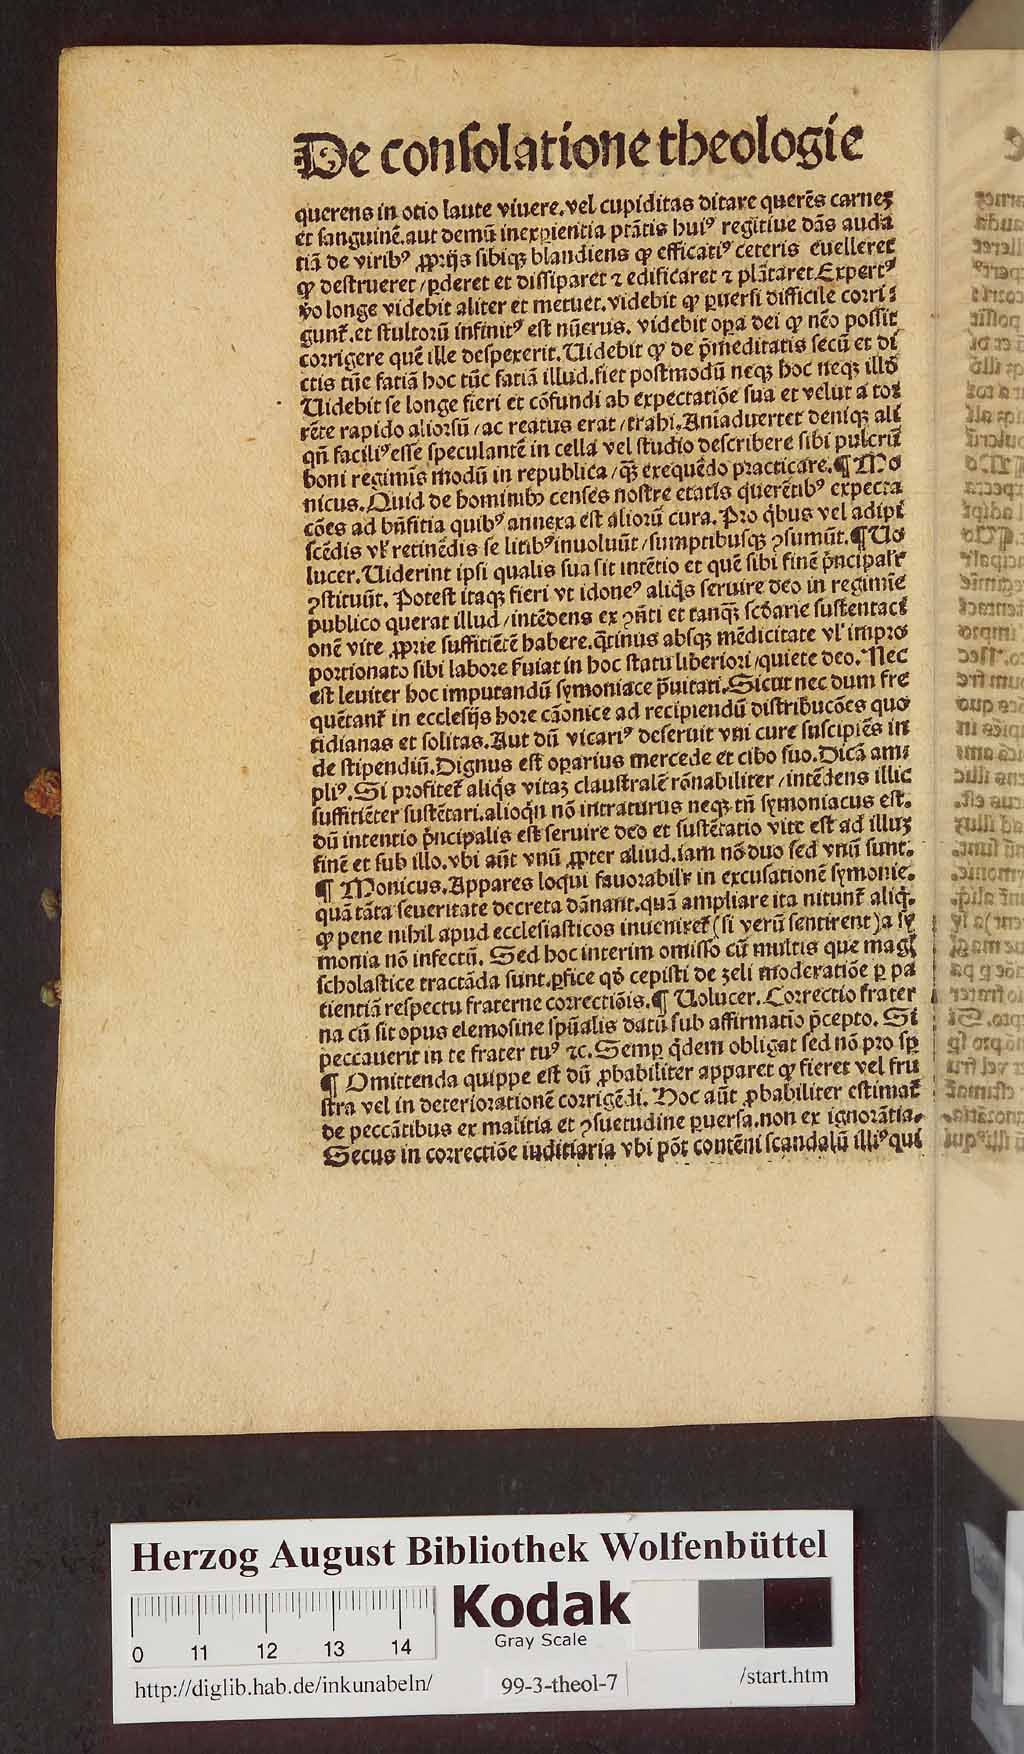 De consolatione theologie
querens in otio laute viuere. vel cupiditas ditare querēs carneꝫ
et sanguinē. aut demū inexꝑientia ptātis huiꝰ regitiue dās auda
tiā de viribꝰ ꝓprijs sibiqꝫ blandiens ꝙ efficatiꝰ ceteris euelleret
ꝙ destrueret / ꝑderet et dissiparet ⁊ edificaret ⁊ plātaret. Expertꝰ
ṽo longe videbit aliter et metuet. videbit ꝙ ꝑuersi difficile corri⸗
gunt̃. et stultorū infinitꝰ est nūerus. videbit oꝑa dei ꝙ nēo possit
corrigere quē ille despexerit. Uidebit ꝙ de p̄meditatis secū et di
ctis tūc fatiā hoc tūc fatiā illud. fiet postmodū neqꝫ hoc neqꝫ illd̄
Uidebit se longe fieri et cōfundi ab expectatiōe sua et velut a tor
rēte rapido aliorsū / ac reatus erat / trahi. Aniaduertet deniqꝫ ali
qn̄ faciliꝰ esse speculantē in cella vel studio describere sibi pulcrū
boni regimīs modū in republica / qꝫ̄ exequēdo practicare. ¶ Mo
nicus. Quid de hominibꝰ censes nostre etatis querētibꝰ expecta
cōes ad bn̄fitia quibꝰ annexa est aliorū cura. Pro qͥbus vel adipi
scēdis vꝉ retinēdis se litibꝰ inuoluūt / sumptibusqꝫ ꝯsumūt. ¶ Uo
lucer. Uiderint ipsi qualis sua sit intētio et quē sibi finē p̄ncipalr̄
ꝯstituūt. Potest itaqꝫ fieri vt idoneꝰ aliqͥs seruire deo in regimīe
publico querat illud / intēdens ex ꝯn̄ti et tanqꝫ̄ scd̄arie sustentaci
onē vite ꝓprie suffitiētē habere. qͣtinus absqꝫ mēdicitate vꝉ impro
portionato sibi labore s̃uiat in hoc statu liberiori / quiete deo. Nec
est leuiter hoc imputandū symoniace p̄uitati. Sicut nec dum fre
quētant̃ in ecclesijs hore cāonice ad recipiendū distribucōes quo
tidianas et solitas. Aut dū vicariꝰ deseruit vni cure suscipiēs in
de stipendiū. Dignus est oꝑarius mercede et cibo suo. Dicā am⸗
pliꝰ. Si profitet̃ aliqͥs vitaꝫ claustralē rōnabiliter / intēdens illic
suffitiēter sustētari. alioqͥn nō intraturus neqꝫ tn̄ symoniacus est.
dū intentio p̄ncipalis est seruire deo et sustētatio vite est ad illuꝫ
finē et sub illo. vbi aūt vnū ꝓpter aliud. iam nō duo sed vnū sunt.
¶ Monicus. Appares loqui fauorabilr̄ in excusationē symonie.
quā tāta seueritate decreta dānant. quā ampliare ita nitunt̃ aliqͥ.
ꝙ pene nihil apud ecclesiasticos inueniret̃ (si verū sentirent) a sy
monia nō infectū. Sed hoc interim omisso cū multis que magͥ
scholastice tractāda sunt. ꝑfice qd̄ cepisti de zeli moderatiōe ꝑ pa
tientiā respectu fraterne correctiōis. ¶ Uolucer. Correctio frater
na cū sit opus elemosine spūalis datū sub affirmatio p̄cepto. Si
peccauerit in te frater tuꝰ ⁊c. Semꝑ qͥdem obligat sed nō pro sꝑ
¶ Omittenda quippe est dū ꝓbabiliter apparet ꝙ fieret vel fru
stra vel in deteriorationē corrigēdi. Hoc aūt ꝓbabiliter estimat̃
de peccātibus ex malitia et ꝯsuetudine ꝑuersa. non ex ignorātia.
Secus in correctiōe iuditiaria vbi pōt contēni scandalū illiꝰ qui
Herzog August Bibliothek Wolfenbüttel
0 11 12 13 14
Kodak
Gray Scale
http://diglib.hab.de/inkunabeln/ 99-3-theol-7 /start.htm